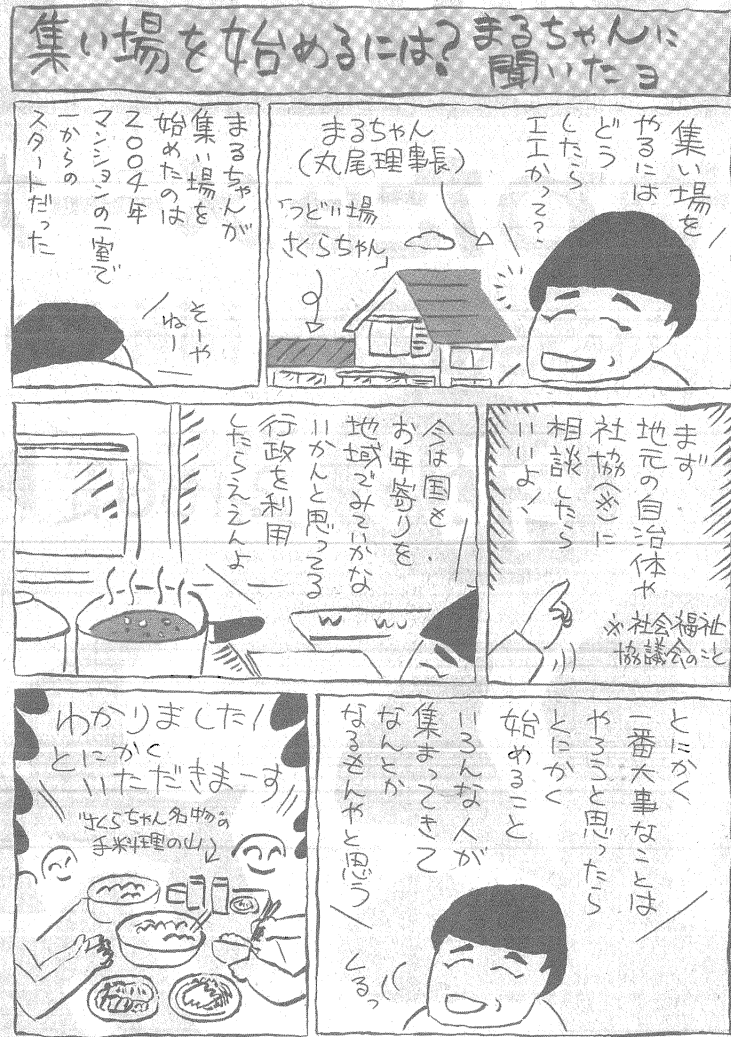 集い場を始めるには?
まるちゃんに
聞いたヨ
集い場を
やるには
どう
したら
エエかって?
まるちゃん
(丸尾理事長)
「つどい場
さくらちゃん」
まるちゃんが
集い場を
始めたのは
2004年
マンションの一室で
一からの
スタートだった
そーや
ねー
まず
地元の自治体や
社協(※)に
相談したら
いいよ!
※社会福祉
協議会のこと
今は国も
お年寄りを
地域でみていかな
いかんと思ってる
行政を利用
したらええんよ
とにかく
一番大事なことは
やろうと思ったら
とにかく
始めること
いろんな人が
集まってきて
なんとか
なるもんやと思う
くるっ
わかりました!
とにかく
いただきまーす
"さくらちゃん名物"の
手料理の山